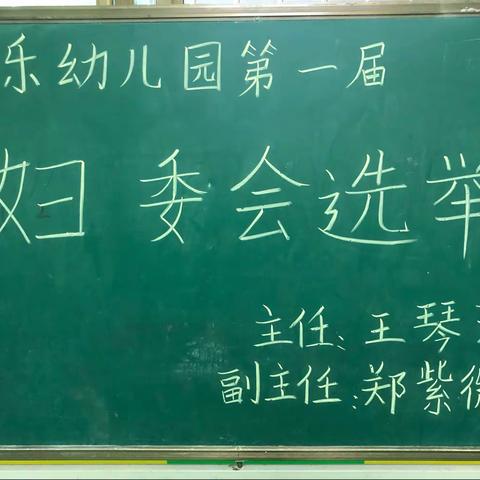 乐幼儿园第一届
妇委会选举
主任:王琴
副主任:郑紫